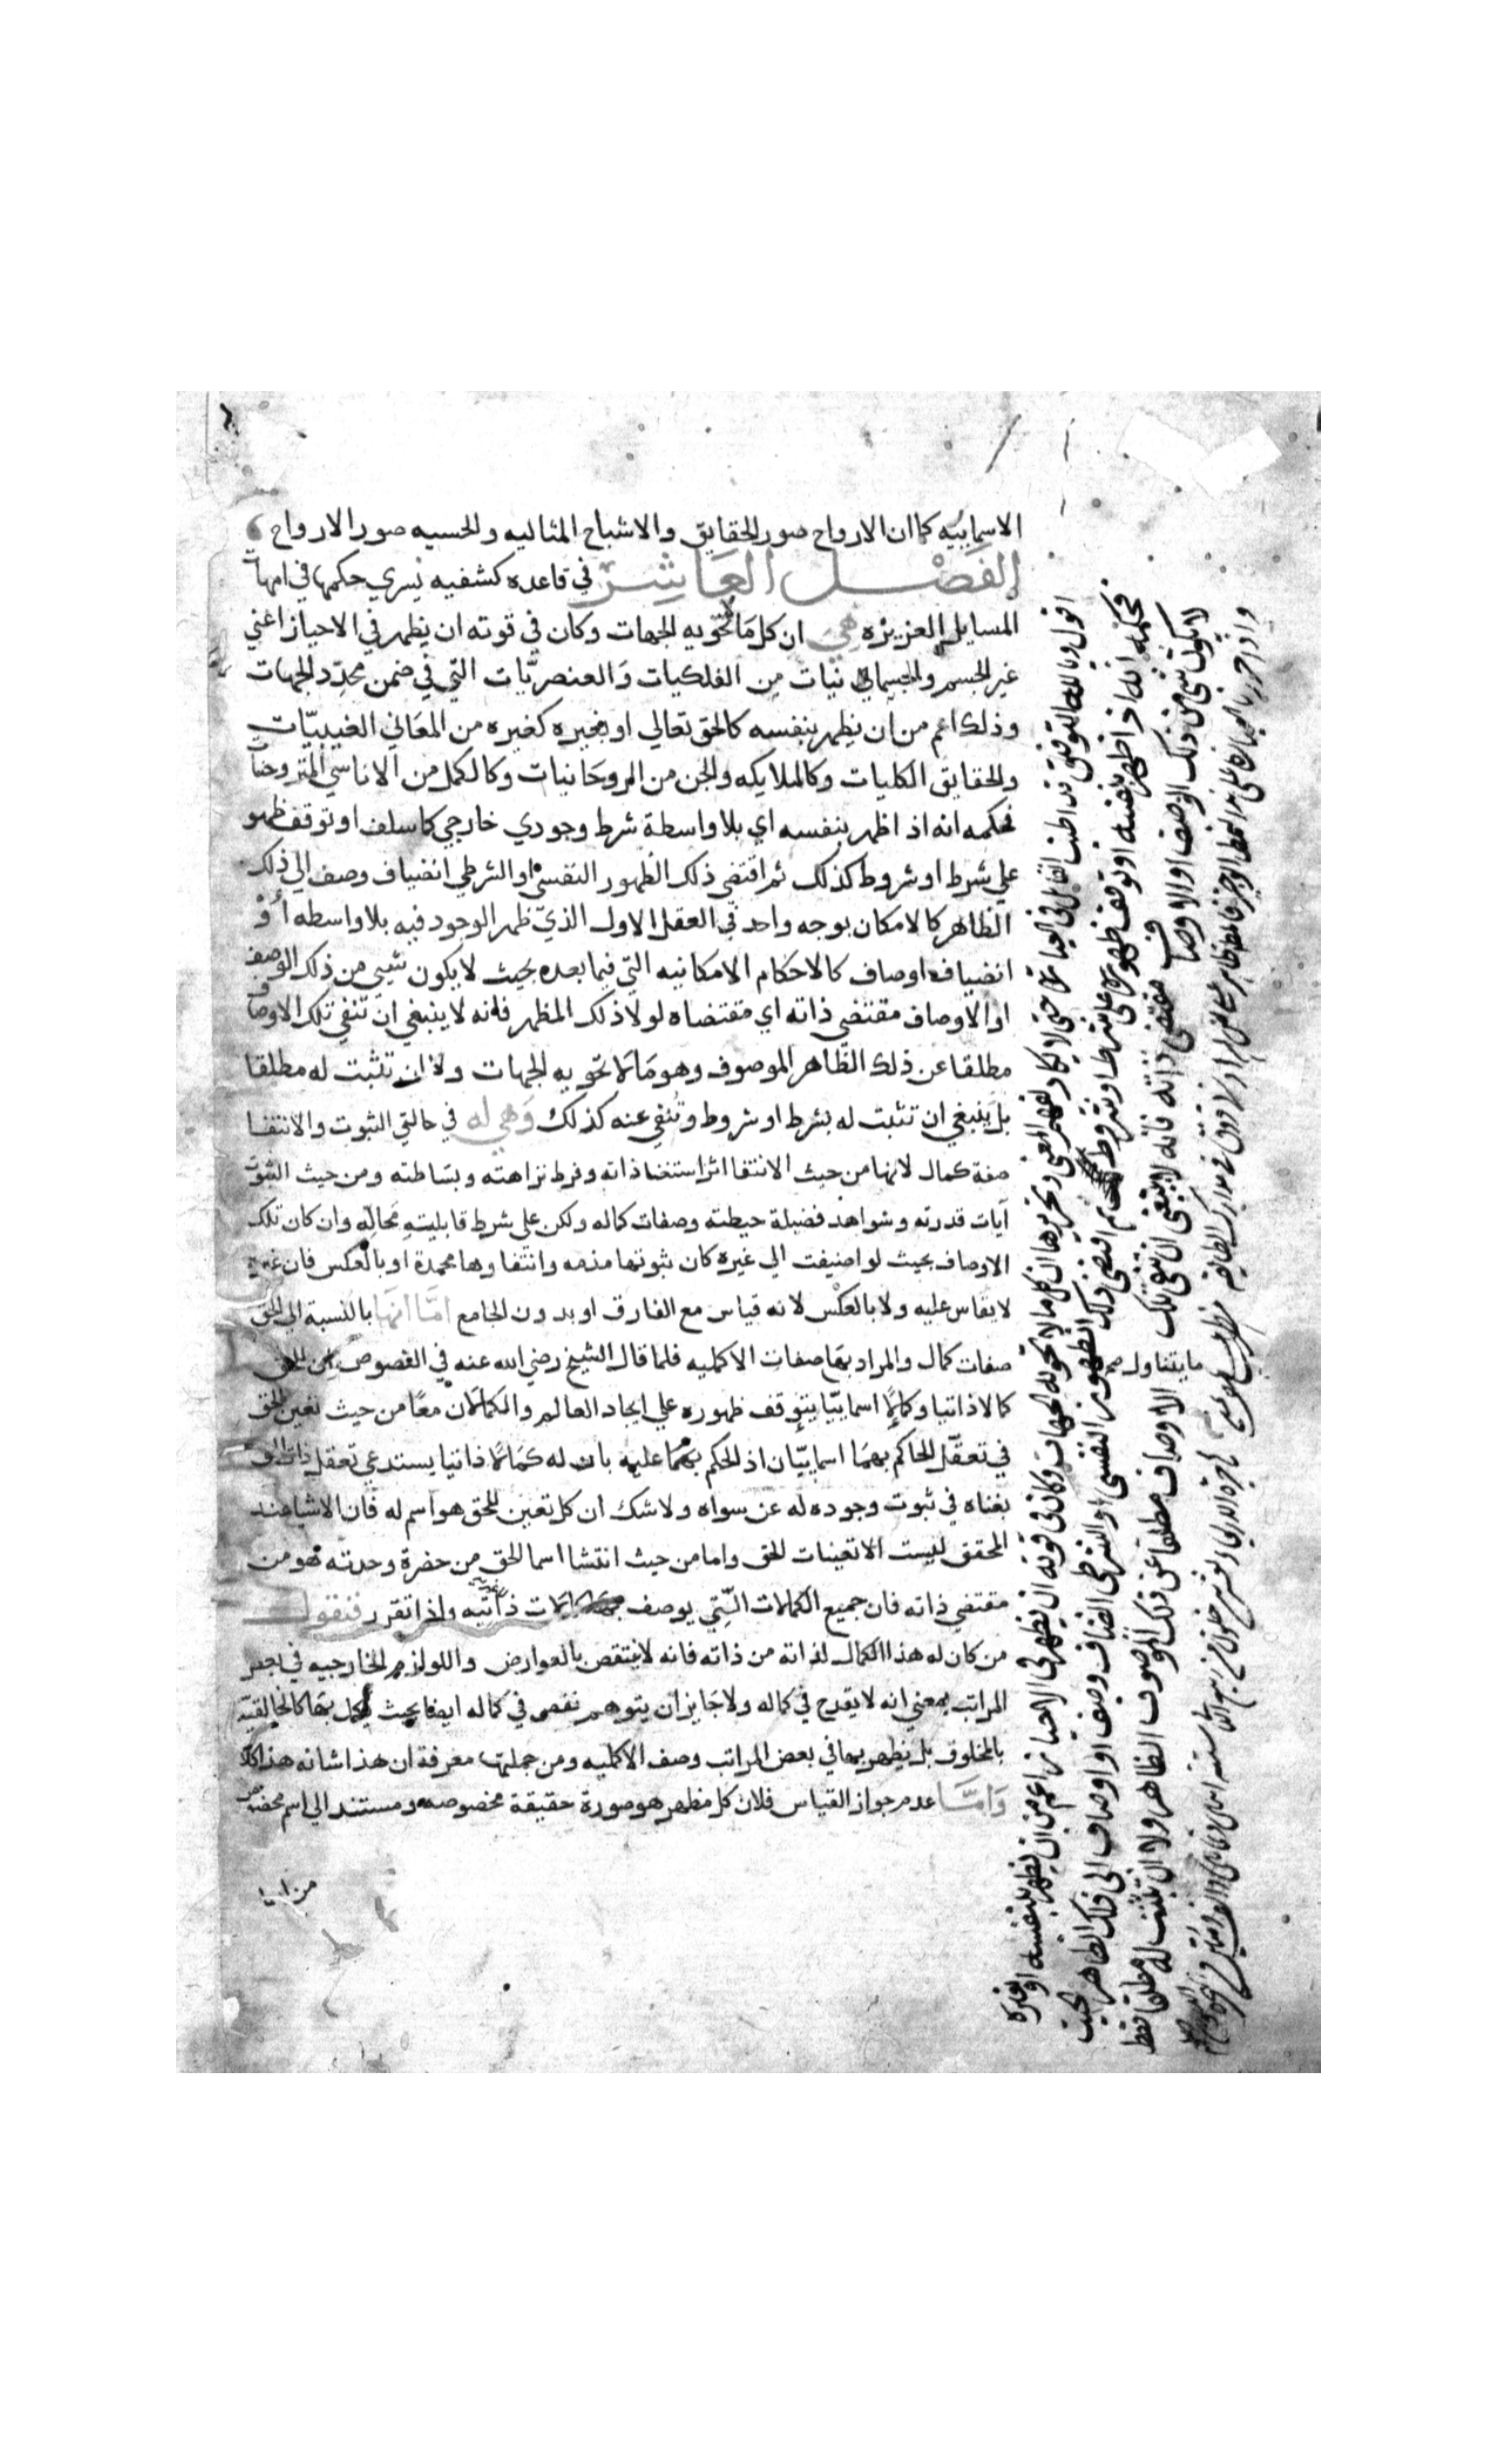 الاسمائيه كما ان الارواح صور الحقايق والاشباح المثاليه والحسيه صور الارواح
الفصل العاشر في قاعده كشفيه يسري حكمها في امهات
المسايل العزيزه هي ان كل ما لا تحويه الجهات وكان في قوته ان يظهر في الاحياز اعني
غير الجسم والجسمانيات من الفلكيات والعنصريّات التي في ضمن محدّد الجهات
وذلك اعم من ان يظهر بنفسه كالحق تعالي او بغيره كغيره من المعاني الغيبيّات
والحقايق الكليات وكالملايكه والجن من الروحانيات وكالكمل من الاناسي المتروحنا
فحكمه انه اذا ظهر بنفسه اي بلا واسطة شرط وجودي خارجي كما سلف او توقف ظهو
علي شرط او شروط كذلك ثم اقتضي ذلك الظهور النفسي او الشرطي انضياف وصف الي ذلك
الظاهر كالامكان بوجه واحد في العقل الاول الذي ظهر الوجود فيه بلا واسطه أو
انضياف اوصاف كالاحكام الامكانيه التي فيما بعده بحيث لا يكون شيي من ذلك الوصف
او الاوصاف مقتضي ذاته اي مقتضاه لولا ذلك المظهر فانه لا ينبغي ان تنفي تلك الاوصاف
مطلقا عن ذلك الظاهر الموصوف وهو ما لا تحويه الجهات ولا ان تثبت له مطلقا
بل ينبغي ان تثبت له بشرط او شروط وتُنفي عنه كذلك وهي له في حالتي الثبوت والانتفا
صفة كمال لانها من حيث الانتفا اثر استغنا ذاته وفرط نزاهته وبساطته ومن حيث الثبوت
آيات قدرته وشواهد فضيلة حيطته وصفات كماله ولكن علي شرط قابليته محالّه وان كان تلك
الاوصاف بحيث لو اضيفت الي غيره كان ثبوتها مذمه وانتفاوها محمدة او بالعكس فان غيره
لا يقاس عليه ولا بالعكس لانه قياس مع الفارق او بدون الجامع امّا انها بالنسبة الي الحق
صفات كمال والمراد بها صفات الاكمليه فلما قال الشيخ رضي الله عنه في الفصوص ان للحق
كمالا ذاتيا وكمالا اسمائيّا يتوقف ظهوره علي ايجاد العالم والكمالان معًا من حيث تعين الحق
في تعقّل الحاكم بهما اسمائيّان اذ الحكم بهما عليه بان له كمالا ذاتيا يستدعي تعقل ذات الحق
بغناه في ثبوت وجوده له عن سواه ولا شك ان كل تعين للحق هو اسم له فان الاشيا عند
المحقق ليست الا تعينات للحق واما من حيث انتشا اسما الحق من حضرة وحدته فهو من
مقتضي ذاته فان جميع الكمالات التي يوصف ذاتيّه واذا تقرر فنقول
من كان له هذا الكمال لذاته من ذاته فانه لا ينتقص بالعوارض واللوازم الخارجيه في بعض
المراتب بمعني انه لا يقدح في كماله ولا جايز ان يتوهم نقص في كماله ايضا بحيث يكمل بها كالخالقيّه
بالمخلوق بل يظهر بها في بعض المراتب وصف الاكمليه ومن جملتها معرفة ان هذا شانه هذا كله
وامّا عدم جواز القياس فلان كل مظهر هو صورة حقيقة مخصوصه ومستند الي اسم مخصوص
اقول وبالله التوفيق قد اطنب القايل في العبارة حتى لا يكاد يفهم المعنى وتحريرها ان كل ما لا تحويه الجهات وكان في قوته ان يظهر في الاحياز اعم من ان يظهر بنفسه او بغيره
فحكمه انه اذا ظهر بنفسه او توقف ظهوره على شرط او شروط ثم اقتضى ذلك الظهور النفسي او الشرطي انضياف وصف او اوصاف الى ذلك الظاهر بحيث
لا يكون شي من ذلك الوصف او الاوصاف مقتضى ذاته فانه لا ينبغي ان تنفى تلك الاوصاف مطلقا عن ذلك الموصوف الظاهر ولا ان تثبت له مطلقا فقط
ما يتناول